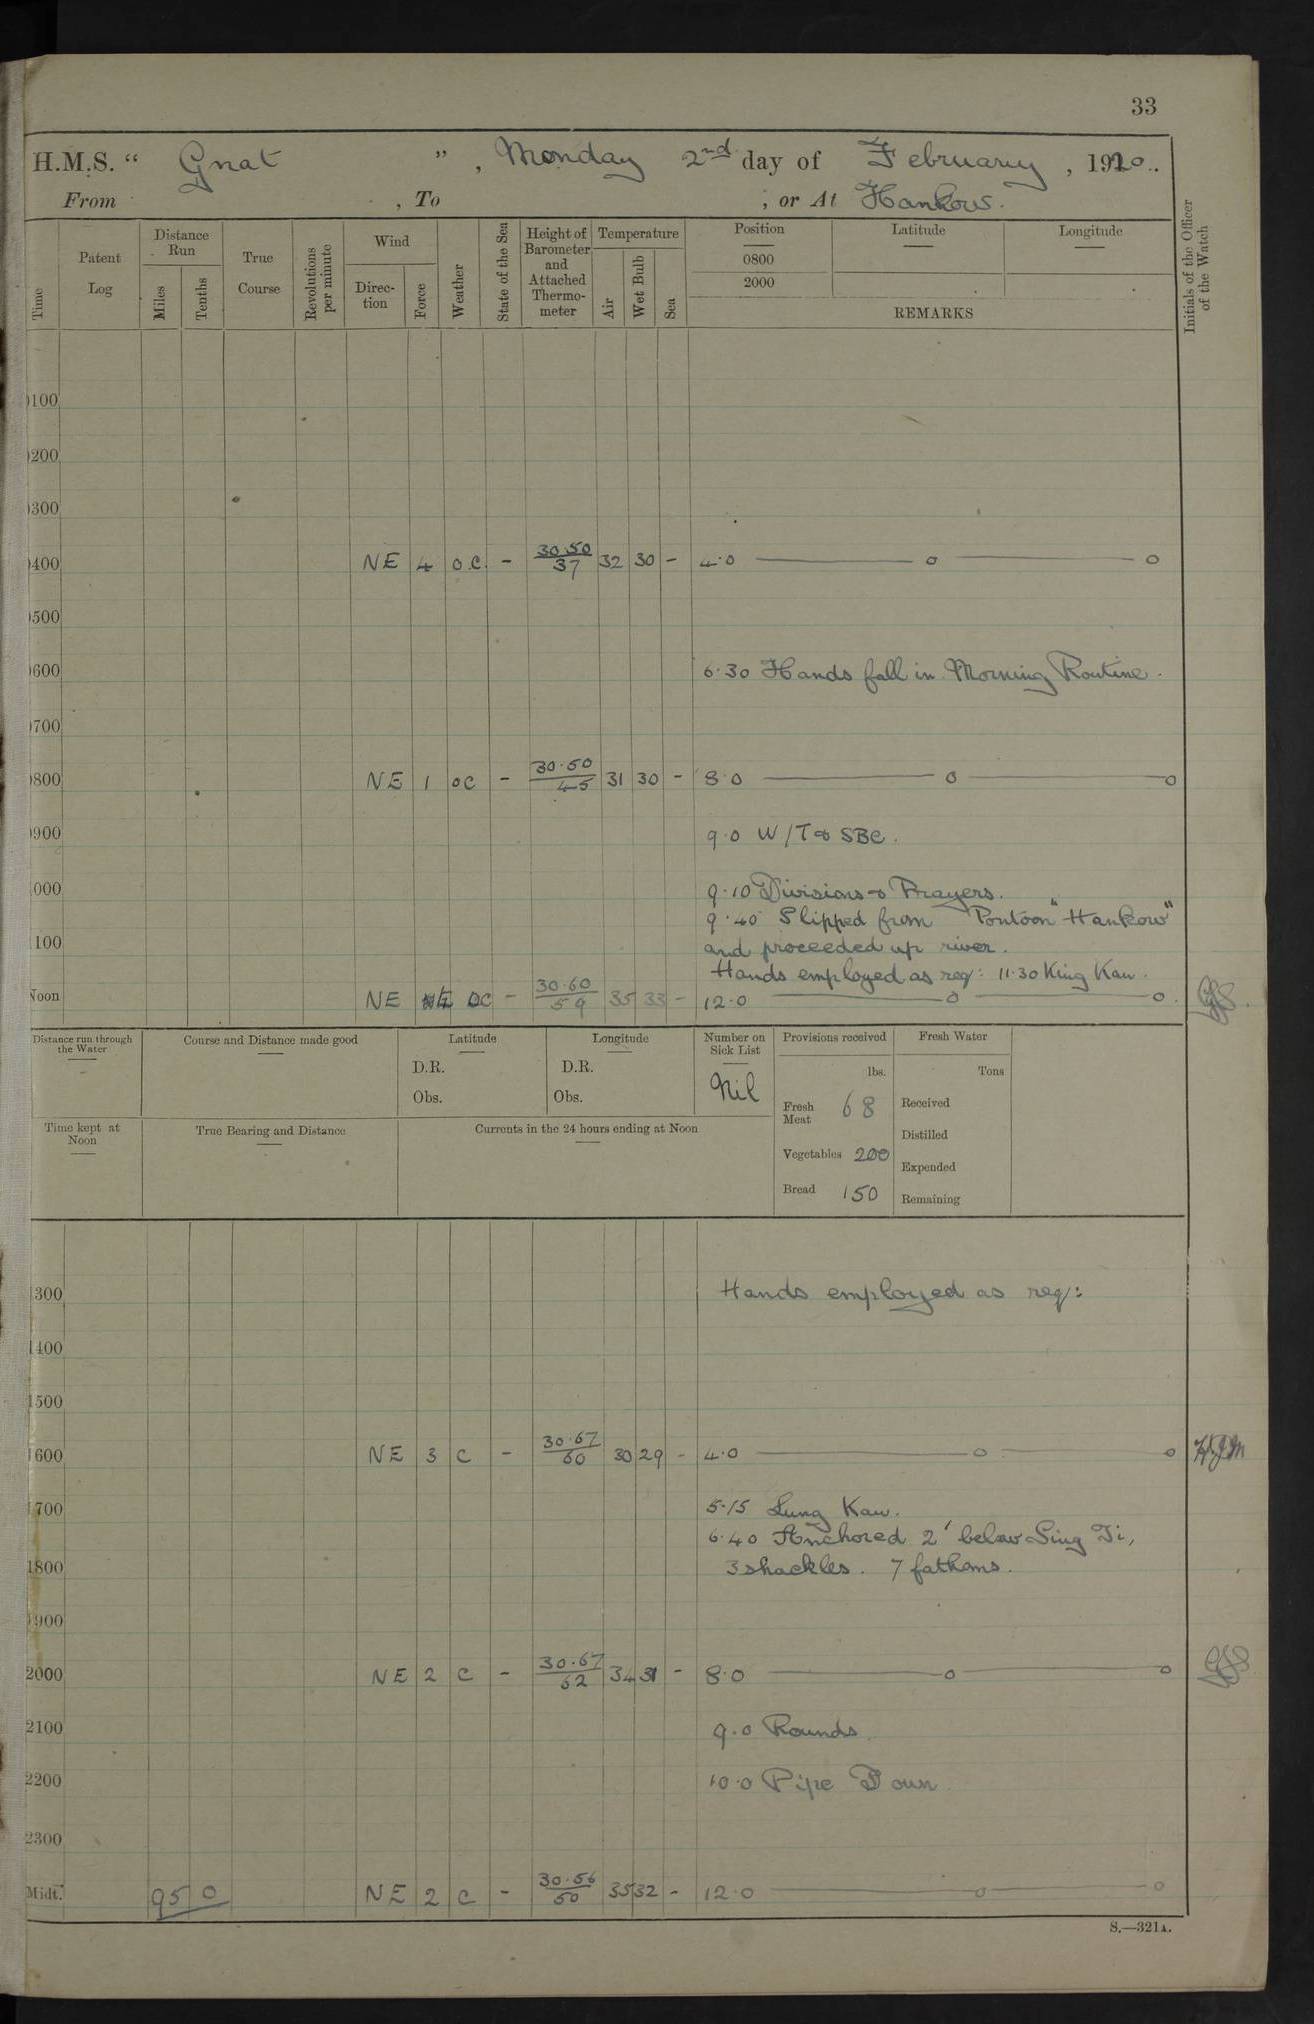 33
H.M.S. “ Gnat ” , Monday 2nd day of February , 1920..
From , To ; or At Hankow.
Time
Patent Log
Distance Run
Miles
Tenths
True Course
Revolutions per minute
Wind
Direc-tion
Force
Weather
State of the Sea
Height of Barometer and Attached Thermo-meter
Temperature
Air
Wet Bulb
Sea
Position
0800
2000
Latitude
Longitude
REMARKS
Initials of the Officer of the Watch
0100
0200
0300
0400 NE 4 o.c. - 30.50/37 32 30 - 4.0 — o — o
0500
0600 6.30 Hands fall in Morning Routine.
0700
0800 NE 1 oc - 30.50/45 31 30 - 8.0 — o — o
0900 9.0 W/T & SBC.
1000 9.10 Divisions & Prayers.
9.40 Slipped from Pontoon "Hankow"
1100 and proceeded up river.
Hands employed as req: 11.30 King Kau.
Noon NE oc - 30.60/59 35 33 - 12.0 — o — o.
Distance run through the Water
Course and Distance made good
Latitude
D.R.
Obs.
Longitude
D.R.
Obs.
Number on Sick List
Nil
Provisions received
lbs.
Fresh Meat 68
Vegetables 200
Bread 150
Fresh Water
Tons
Received
Distilled
Expended
Remaining
Time kept at Noon
True Bearing and Distance
Currents in the 24 hours ending at Noon
1300 Hands employed as req:
1400
1500
1600 NE 3 c - 30.67/60 30 29 - 4.0 — o — o
1700 5.15 Lung Kau.
6.40 Anchored 2' below Sing Ti,
1800 3 shackles. 7 fathoms.
1900
2000 NE 2 c - 30.67/62 34 31 - 8.0 — o — o
2100 9.0 Rounds.
2200 10.0 Pipe Down
2300
Midt. 95 0 NE 2 c - 30.56/50 35 32 - 12.0 — o — o
S.—321A.